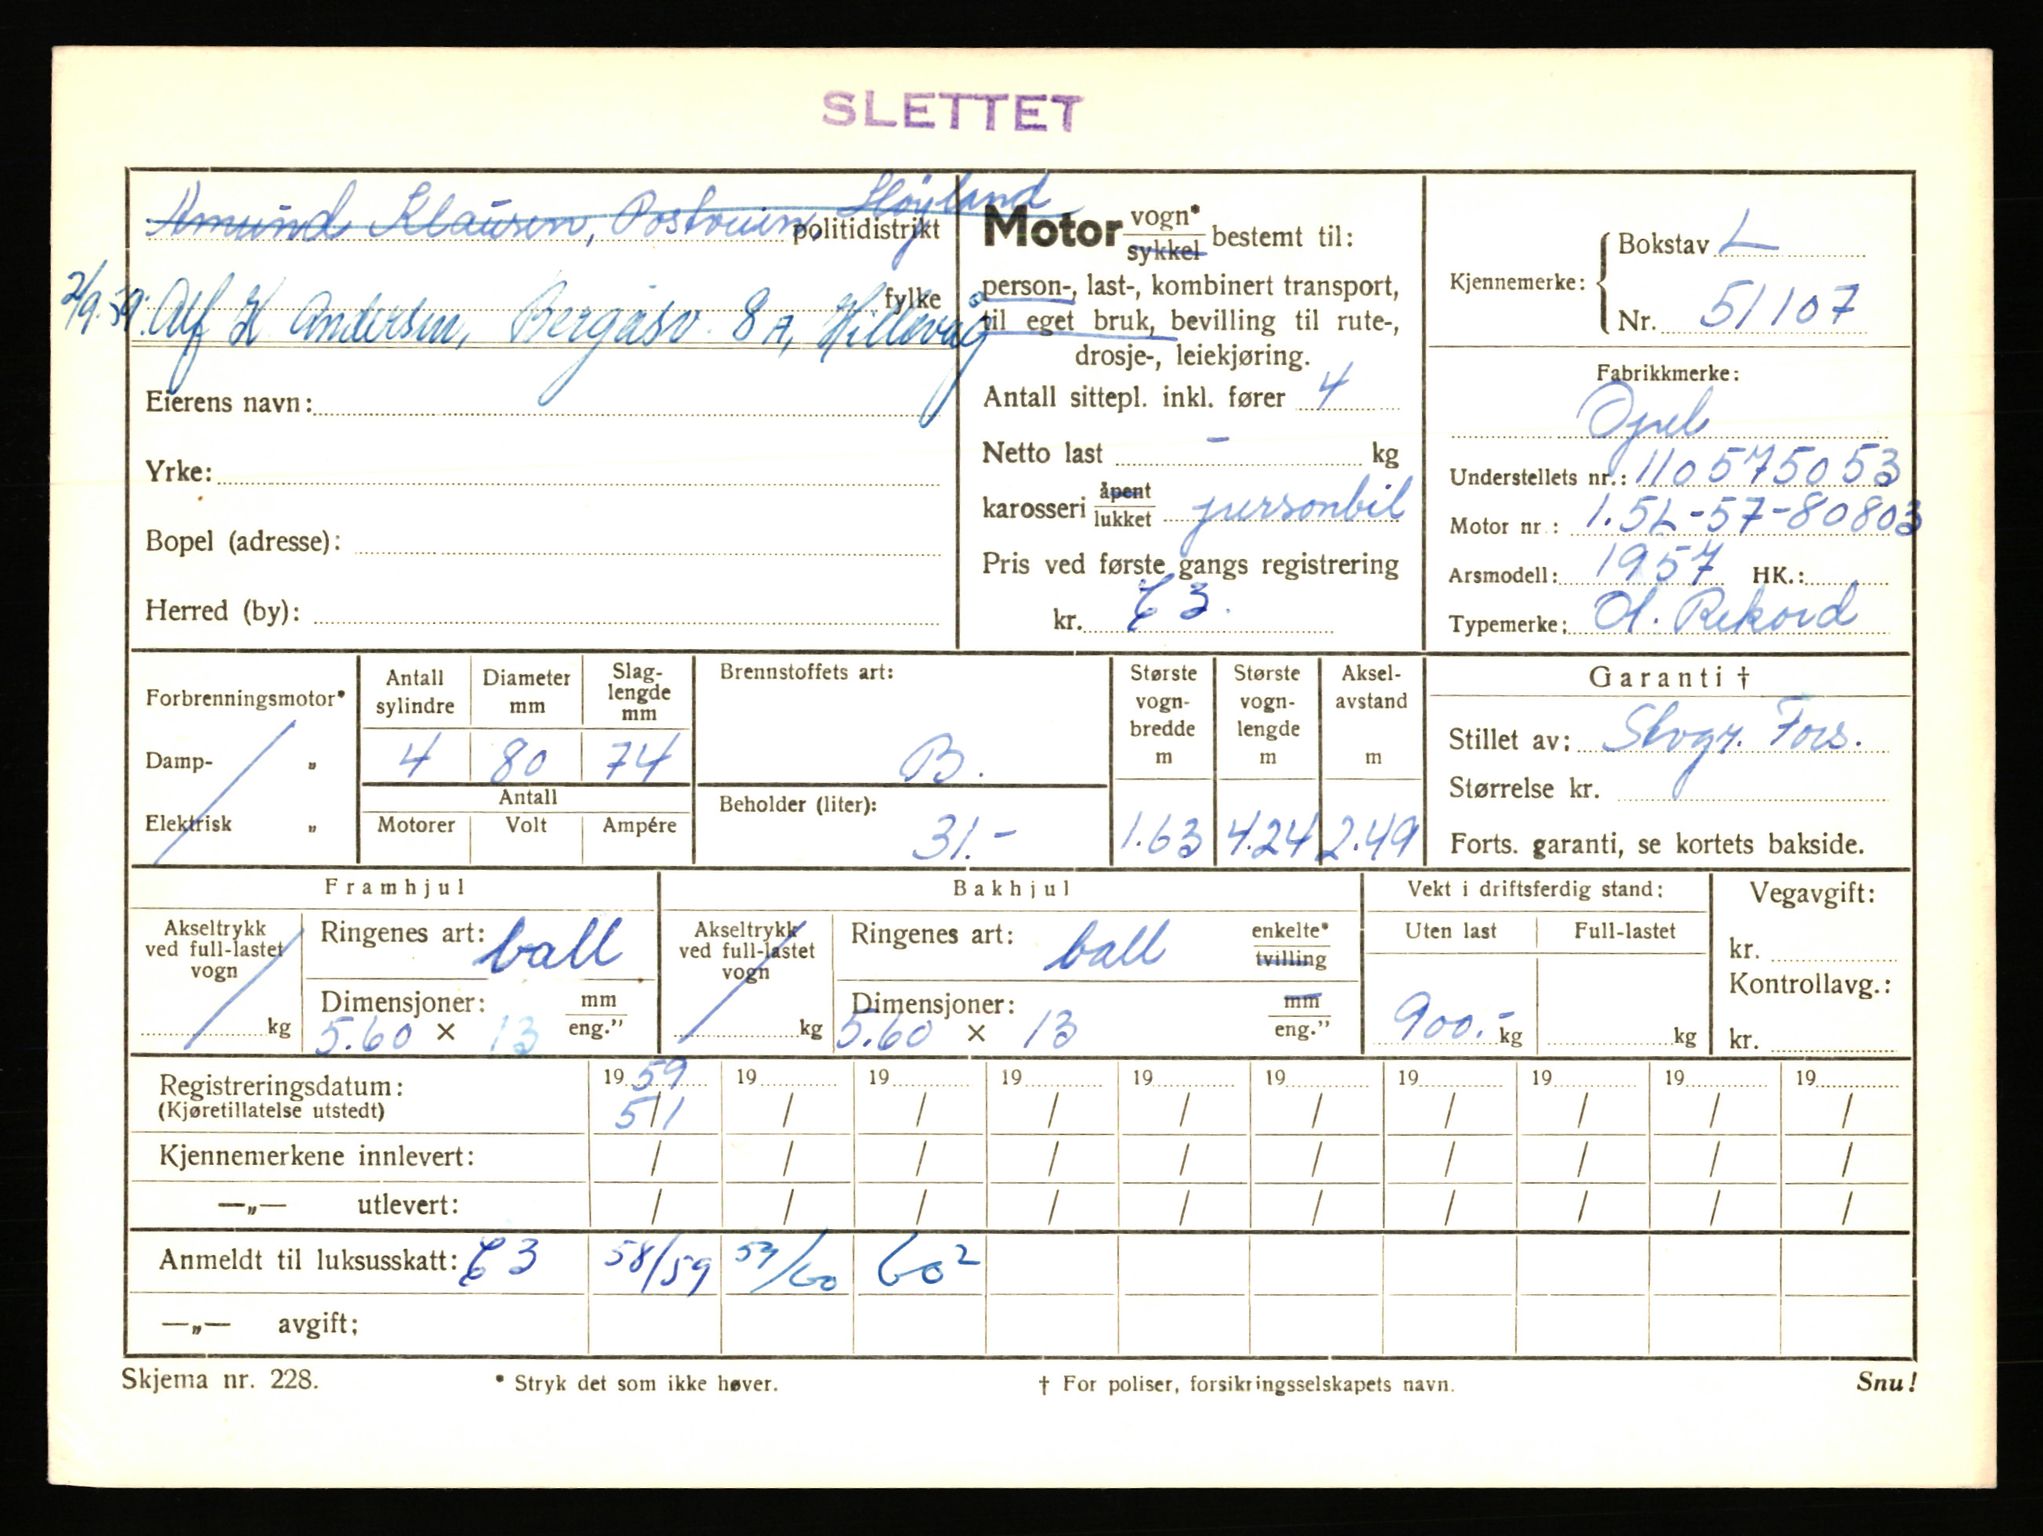 SLETTET
Amund Klausen, Postruin, Høyland politidistrikt
2/9.59. Alf H Andersen, Bergåsv. 8 A, Hillevåg fylke
Eierens navn:
Yrke:
Bopel (adresse):
Herred (by):
Motor vogn* sykkel bestemt til:
person-, last-, kombinert transport,
til eget bruk, bevilling til rute-,
drosje-, leiekjøring.
Antall sittepl. inkl. fører 4
Netto last - kg
karosseri åpent lukket personbil
Pris ved første gangs registrering
kr. C 3.
Kjennemerke: Bokstav L
Nr. 51107
Fabrikkmerke:
Opel
Understellets nr.: 110575053
Motor nr.: 1.5L-57-80803
Arsmodell: 1957 HK.:
Typemerke: Ol. Rekord
Forbrenningsmotor*
Damp- „
Elektrisk „
Antall sylindre Diameter mm Slag-lengde mm
4 80 74
Antall
Motorer Volt Ampére
Brennstoffets art:
B.
Beholder (liter):
31.-
Største vogn-bredde m Største vogn-lengde m Aksel-avstand m
1.63 4.24 2.49
Garanti †
Stillet av: Skogr. Fors.
Størrelse kr.
Forts. garanti, se kortets bakside.
Framhjul
Akseltrykk ved full-lastet vogn kg
Ringenes art: ball
Dimensjoner: mm
5.60 × 13 eng.”
Bakhjul
Akseltrykk ved full-lastet vogn kg
Ringenes art: ball enkelte* tvilling
Dimensjoner: mm
5.60 × 13 eng.”
Vekt i driftsferdig stand:
Uten last Full-lastet
900.- kg kg
Vegavgift:
kr.
Kontrollavg.:
kr.
Registreringsdatum: 19 59 19 19 19 19 19 19 19 19 19
(Kjøretillatelse utstedt) 5/1 / / / / / / / / /
Kjennemerkene innlevert: / / / / / / / / / /
—„— utlevert: / / / / / / / / / /
Anmeldt til luksusskatt: C 3 58/59 59/60 60²
—„— avgift:
Skjema nr. 228. * Stryk det som ikke høver. † For poliser, forsikringsselskapets navn. Snu!